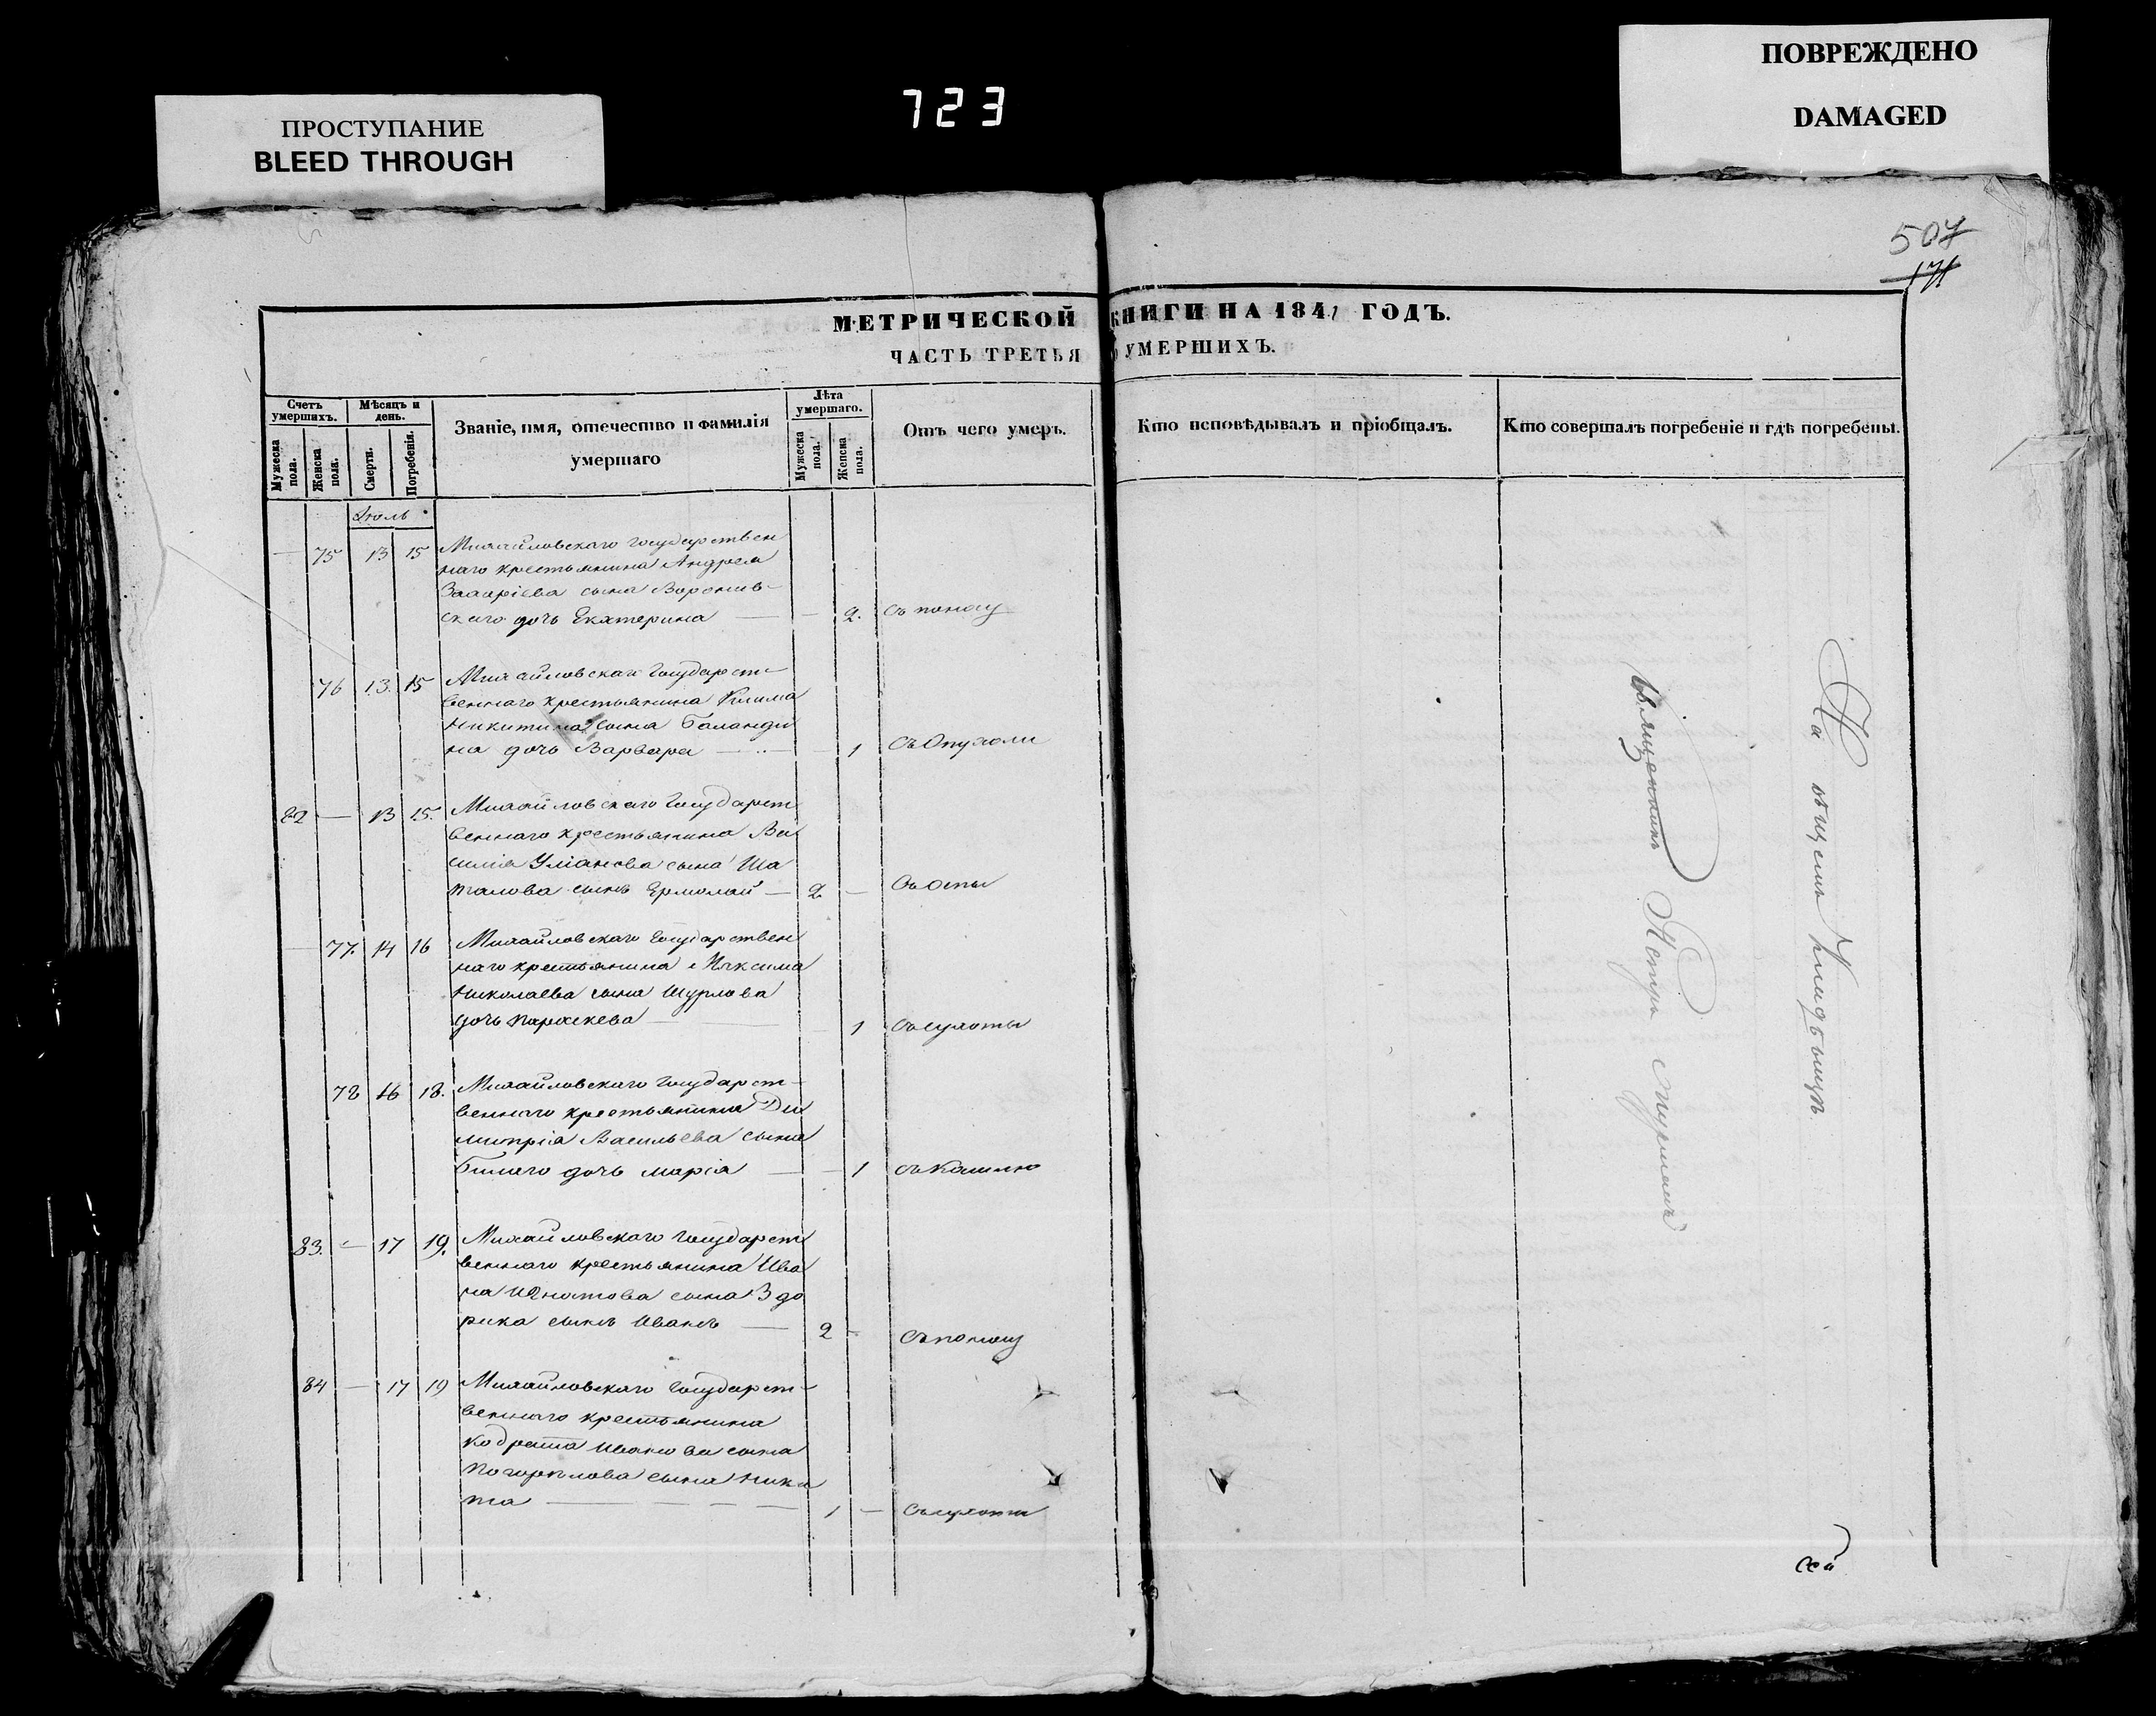 ПРОСТУПАНИЕ
BLEED THROUGH
723
ПОВРЕЖДЕНО
DAMAGED
507
171
МЕТРИЧЕСКОЙ КНИГИ НА 1841 ГОДЪ.
ЧАСТЬ ТРЕТЬЯ О УМЕРШИХЪ.
Счетъ умершихъ.
Мужеска пола.
Женска пола.
Мѣсяцъ и день.
Смерти.
Погребенія.
Званіе, имя, отечество и фамилія
умершаго
Лѣта умершаго.
Мужеска пола.
Женска пола.
Отъ чего умеръ.
Кто исповѣдывалъ и пріобщалъ.
Кто совершалъ погребеніе и гдѣ погребены.
Іюль
— 75 13 15 Михайловскаго государствен
наго крестьянина Андрея
Захаріева сына Воронов-
скаго дочь Екатерина — — 2. съ поносу
76 13. 15 Михайловскаго Государст-
веннаго крестьянина Клима
Никитина сына Баланди
на дочь Варвара — — 1 съ Опухоли
82 — 13 15. Михайловскаго Государст
веннаго крестьянина Ва
силія Уліанова сына Ша
талова сынъ Ермолай — 2 — Съ оспы
— 77. 14 16 Михайловскаго Государствен
наго крестьянина Максима
Николаева сына Шурлова
дочь Параскева — — 1 Съ сухоты
78 16 18. Михайловскаго Государст-
веннаго крестьянина Ди
митрія Васильева сына
Билаго дочь Марія — — 1 съ Кашлю
83. — 17 19. Михайловскаго Государст
веннаго крестьянина Ива
на Игнатова сына Здо
рика сынъ Иванъ — 2 — Съ поносу
84 — 17 19 Михайловскаго Государст-
веннаго крестьянина
Кодрата Иванова сына
Погорѣлова сына Ники
та — — — — 1 — Съ сухоты
Священникъ Петръ
На общемъ Кладбищѣ.